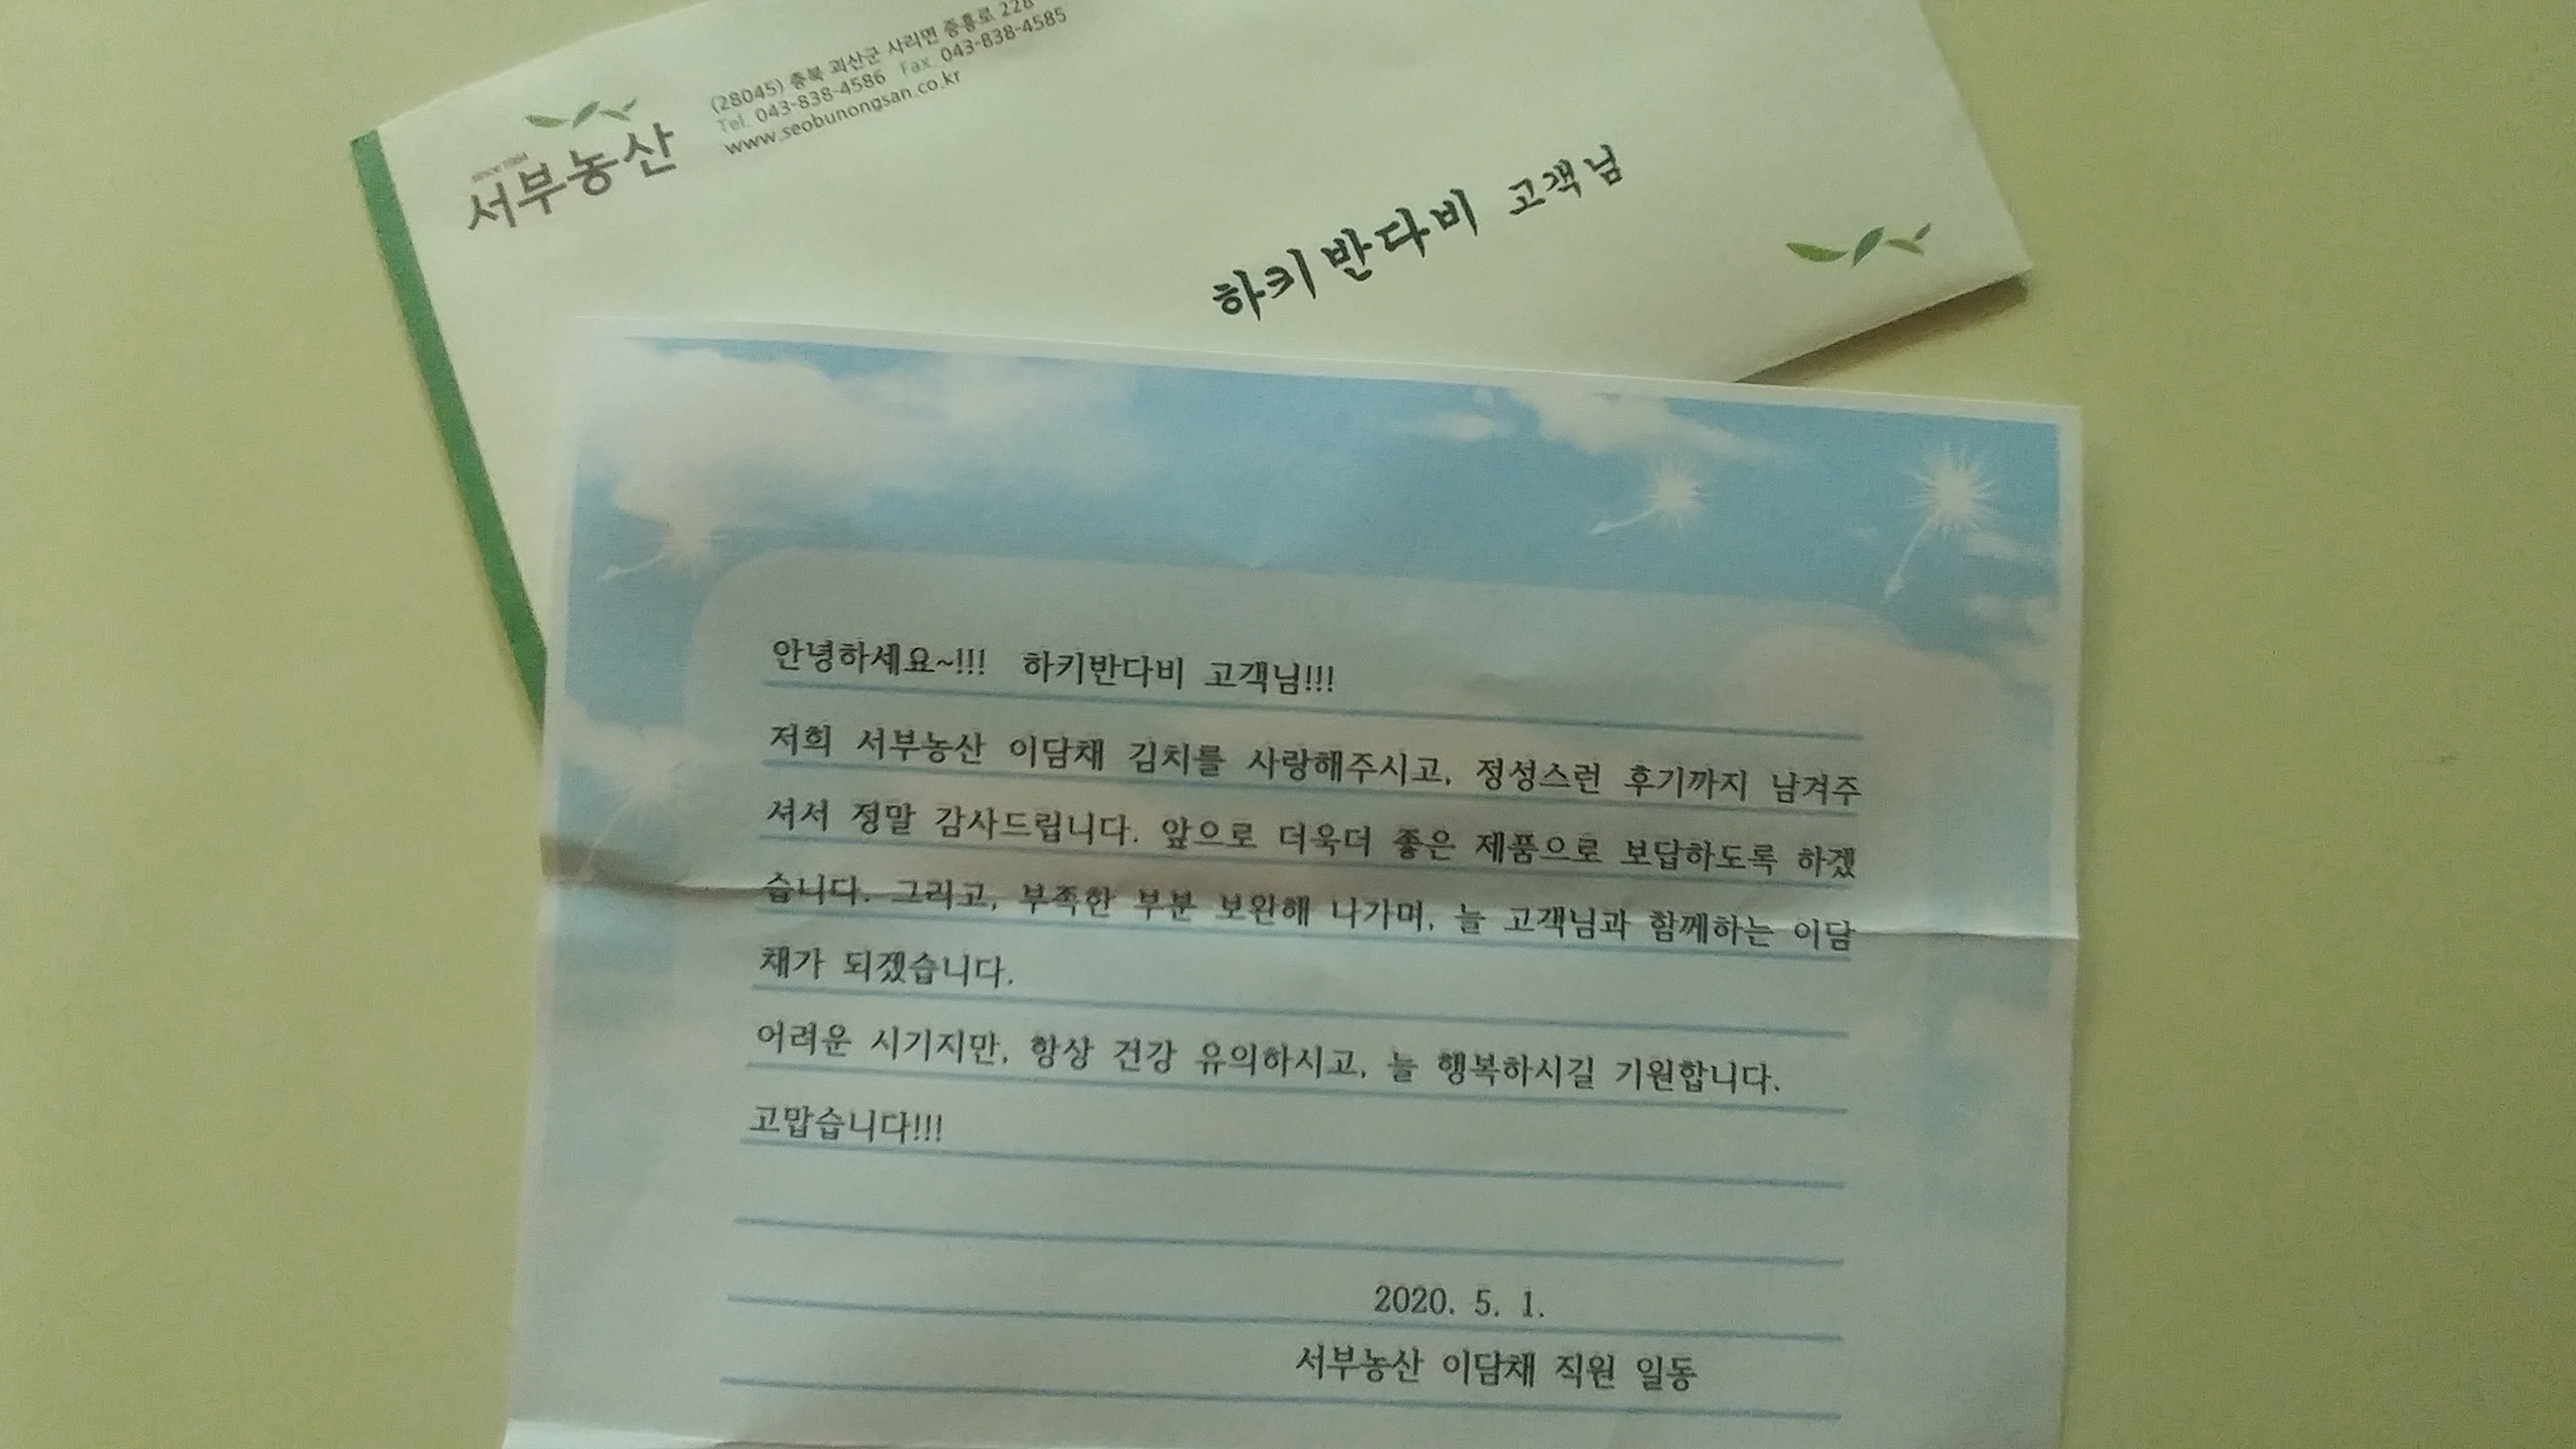 (28045) 충북 괴산군 사리면 중흥로 228
Tel. 043-838-4586 Fax. 043-838-4585
www.seobunongsan.co.kr
서부농산
하키반다비 고객님
안녕하세요~!!! 하키반다비 고객님!!!
저희 서부농산 이담채 김치를 사랑해주시고, 정성스런 후기까지 남겨주
셔서 정말 감사드립니다. 앞으로 더욱더 좋은 제품으로 보답하도록 하겠
습니다. 그리고, 부족한 부분 보완해 나가며, 늘 고객님과 함께하는 이담
채가 되겠습니다.
어려운 시기지만, 항상 건강 유의하시고, 늘 행복하시길 기원합니다.
고맙습니다!!!
2020. 5. 1.
서부농산 이담채 직원 일동